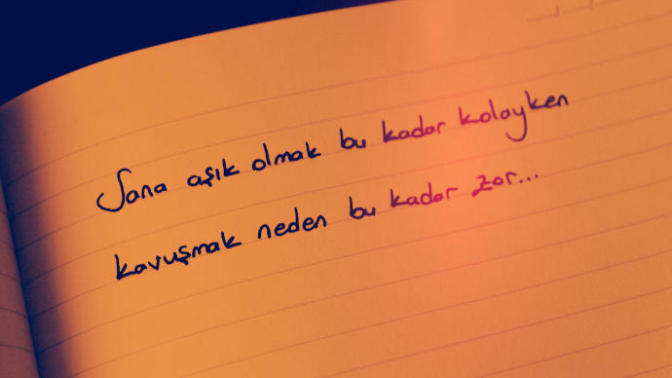 Sana aşık olmak bu kadar kolayken
kavuşmak neden bu kadar zor...